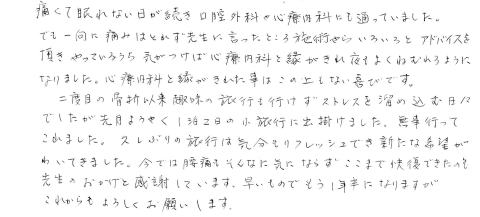 痛くて眠れない日が続き口腔外科や心療内科にも通っていました。
でも一向に痛みはとれず先生に言ったところ施術やらいろいろとアドバイスを
頂きやっているうち気がつけば心療内科と縁がきれ夜もよくねむれるように
なりました。心療内科と縁がきれた事はこの上もない喜びです。
二度目の骨折以来趣味の旅行も行けずストレスを溜め込む日々
でしたが先月ようやく1泊2日の小旅行に出掛けました。無事行って
これました。久しぶりの旅行は気分もリフレッシュでき新たな希望が
わいてきました。今では腰痛もそんなに気にならずここまで快復できたのも
先生のおかげと感謝しています。早いものでもう1年半になりますが
これからもよろしくお願いします。